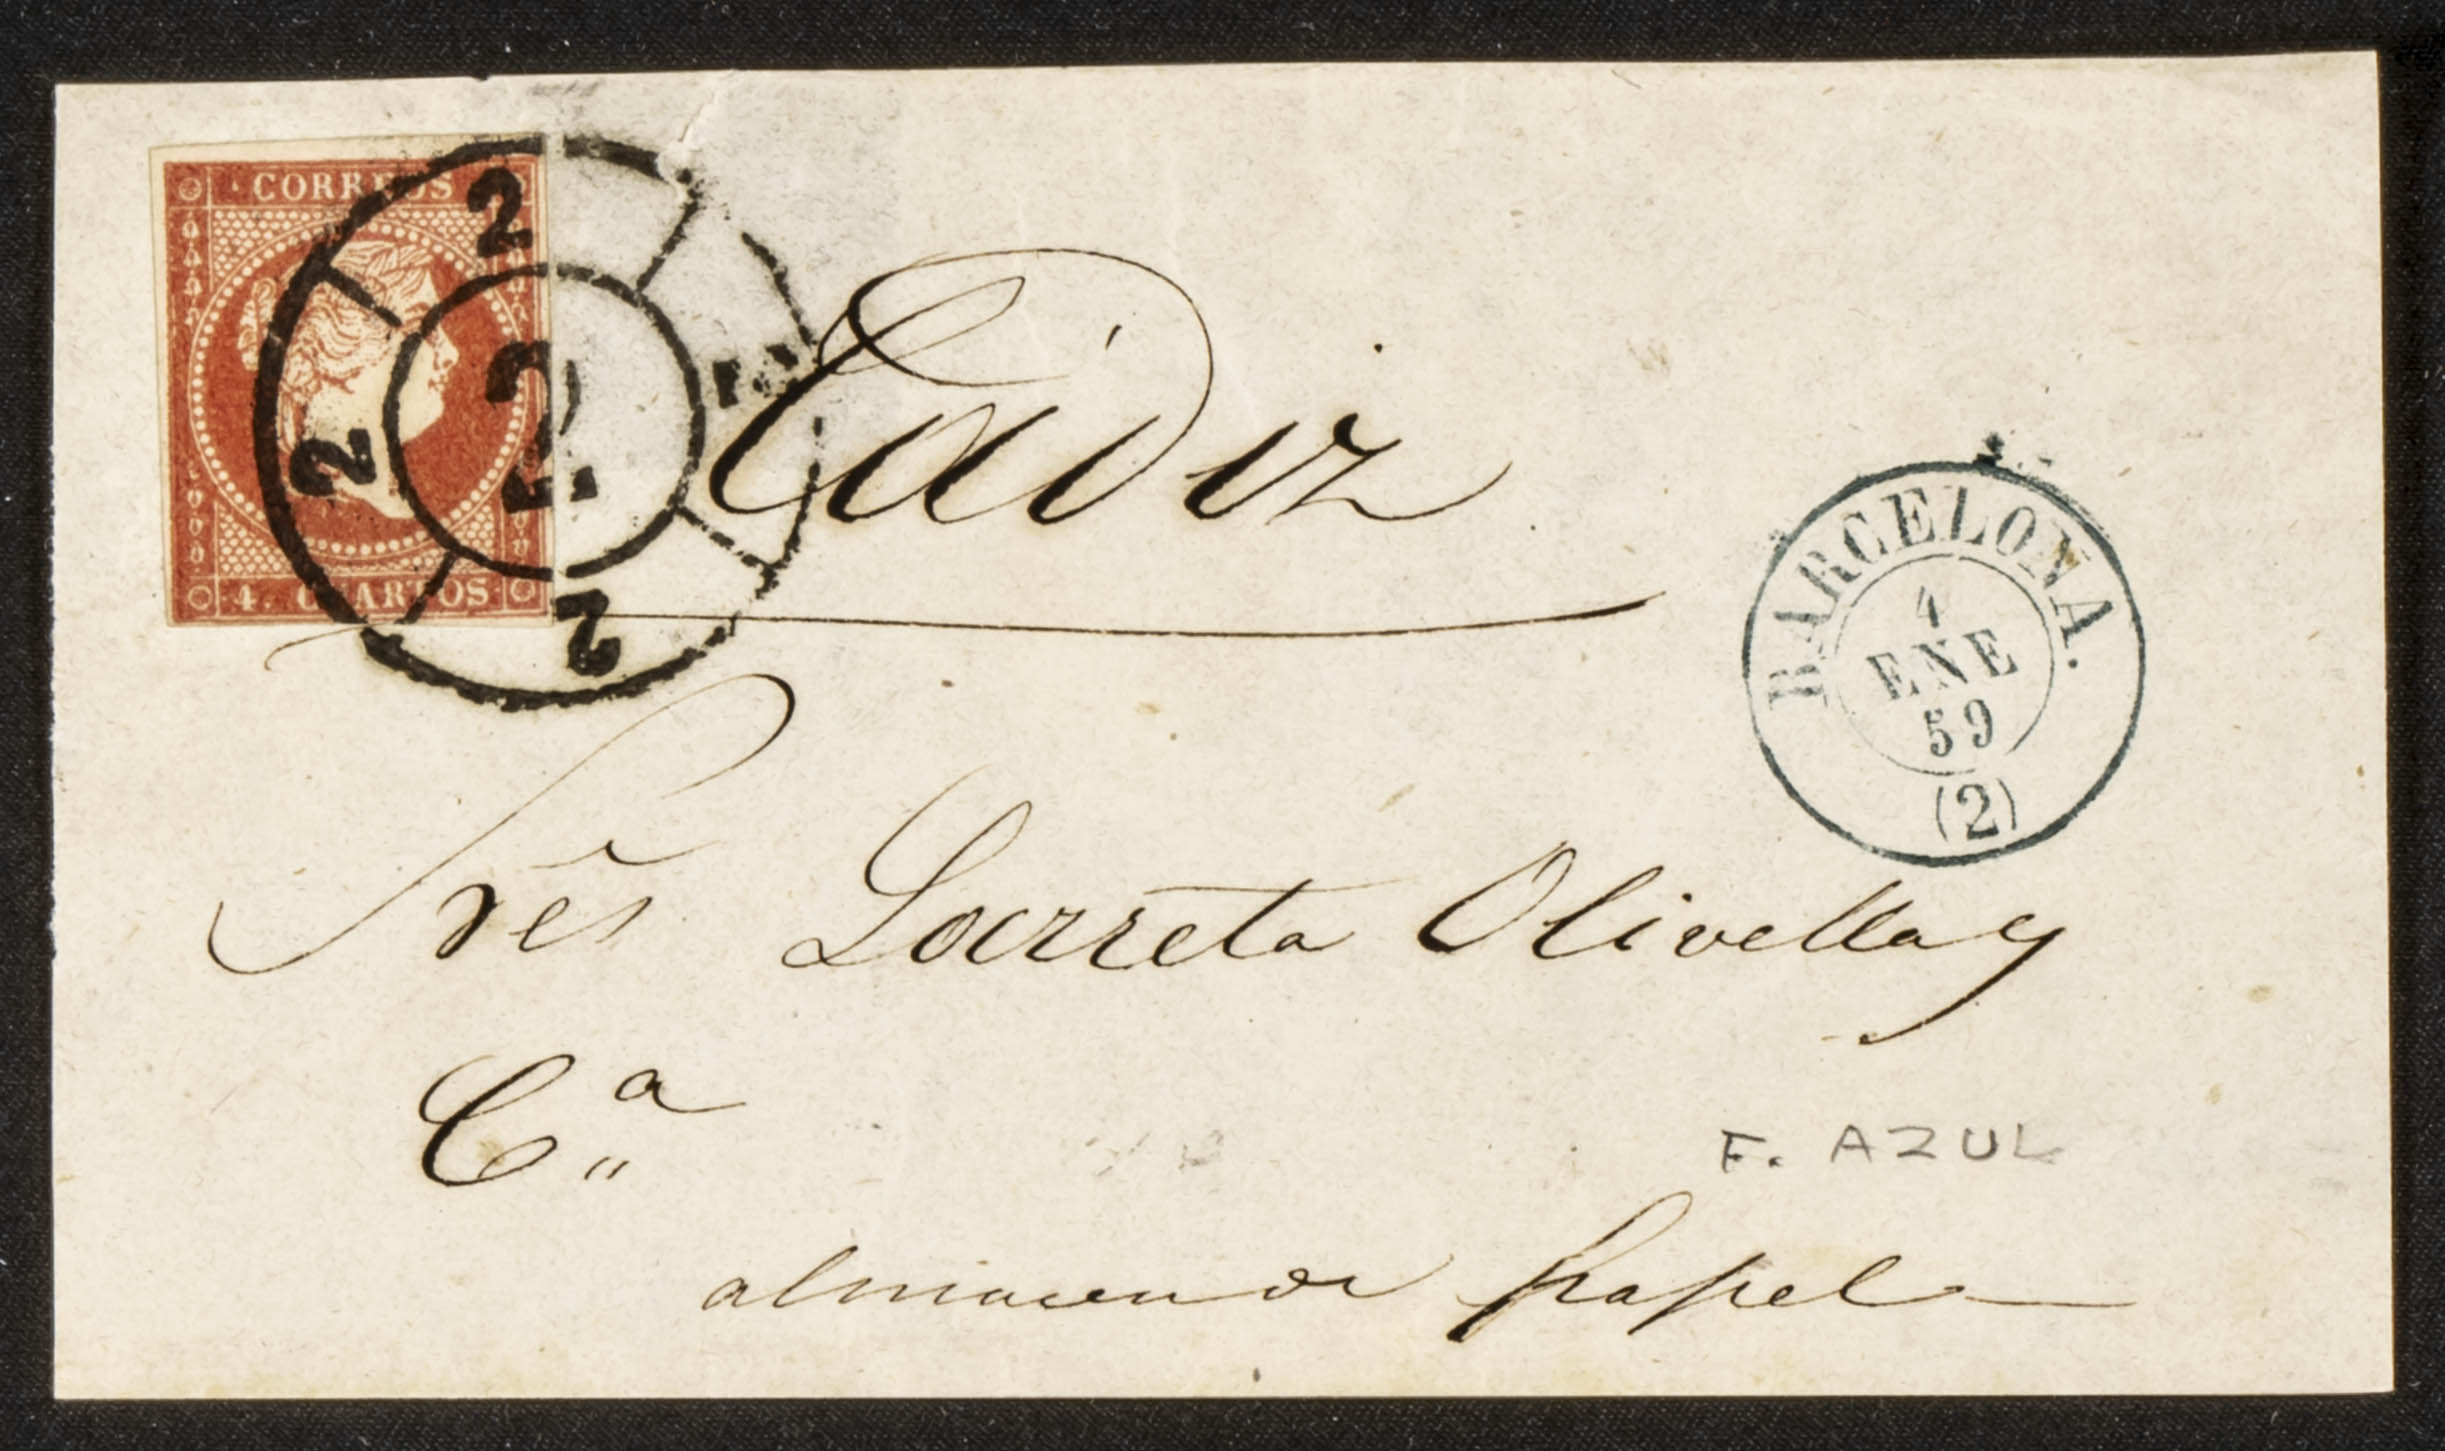 CORREOS
4. CUARTOS
2
2
2
2
Cádiz
BARCELONA.
4
ENE
59
(2)
Srês Larreta Olivella y
Cª
F. AZUL
almacen de papel